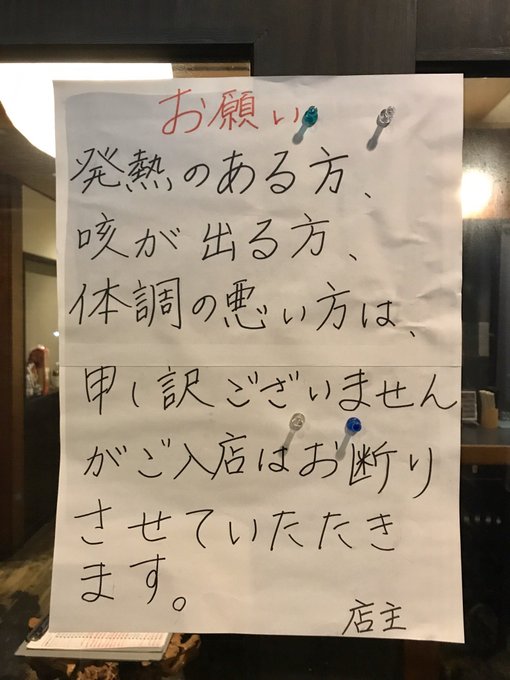 お願い
発熱のある方、
咳が出る方、
体調の悪い方は、
申し訳ございません
がご入店はお断り
させていたたき
ます。
店主